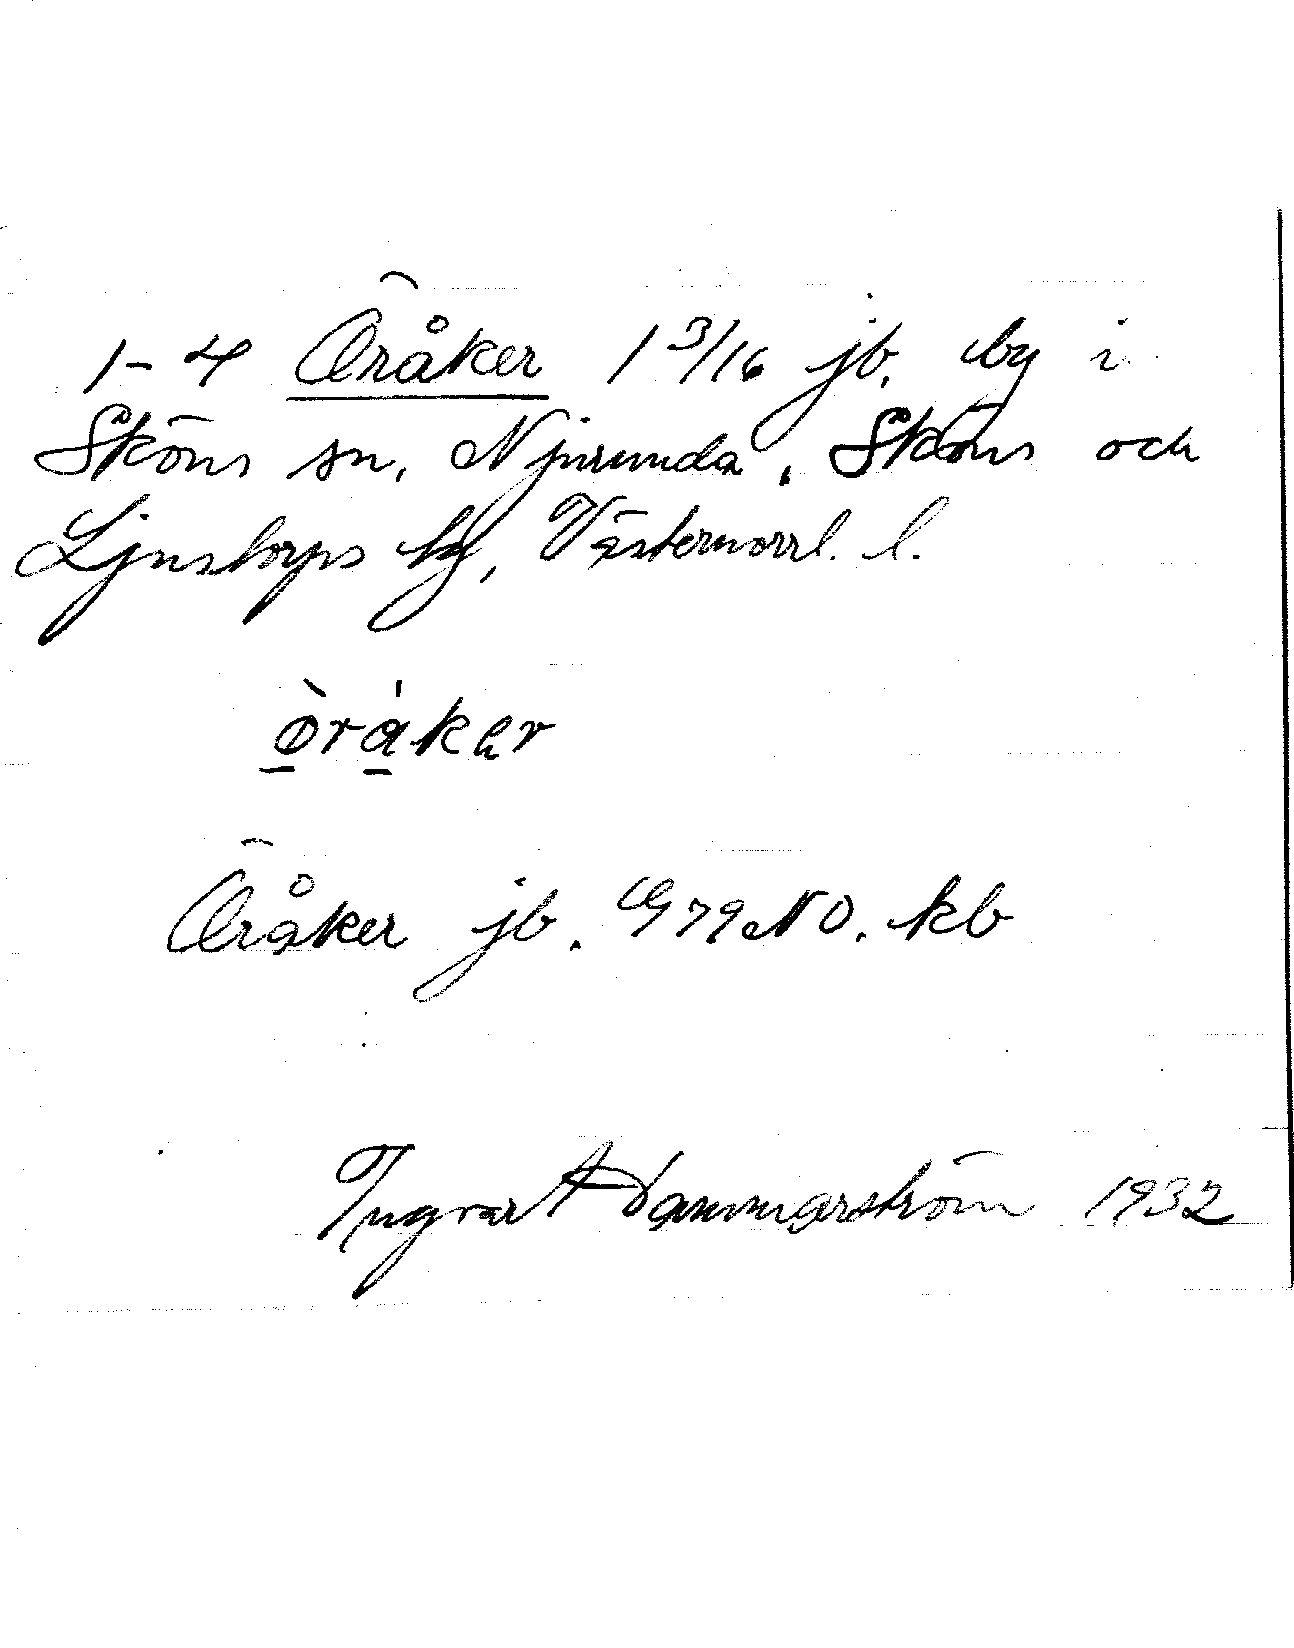 1-4 Öråker 1 3/16 jb. by i
Sköns sn, Njurunda, Sköns och
Ljustorps tg, Västernorrl. l.
ø̀ráker
Öråker jb. G79NO. kb
Ingvar Hammarström 1932